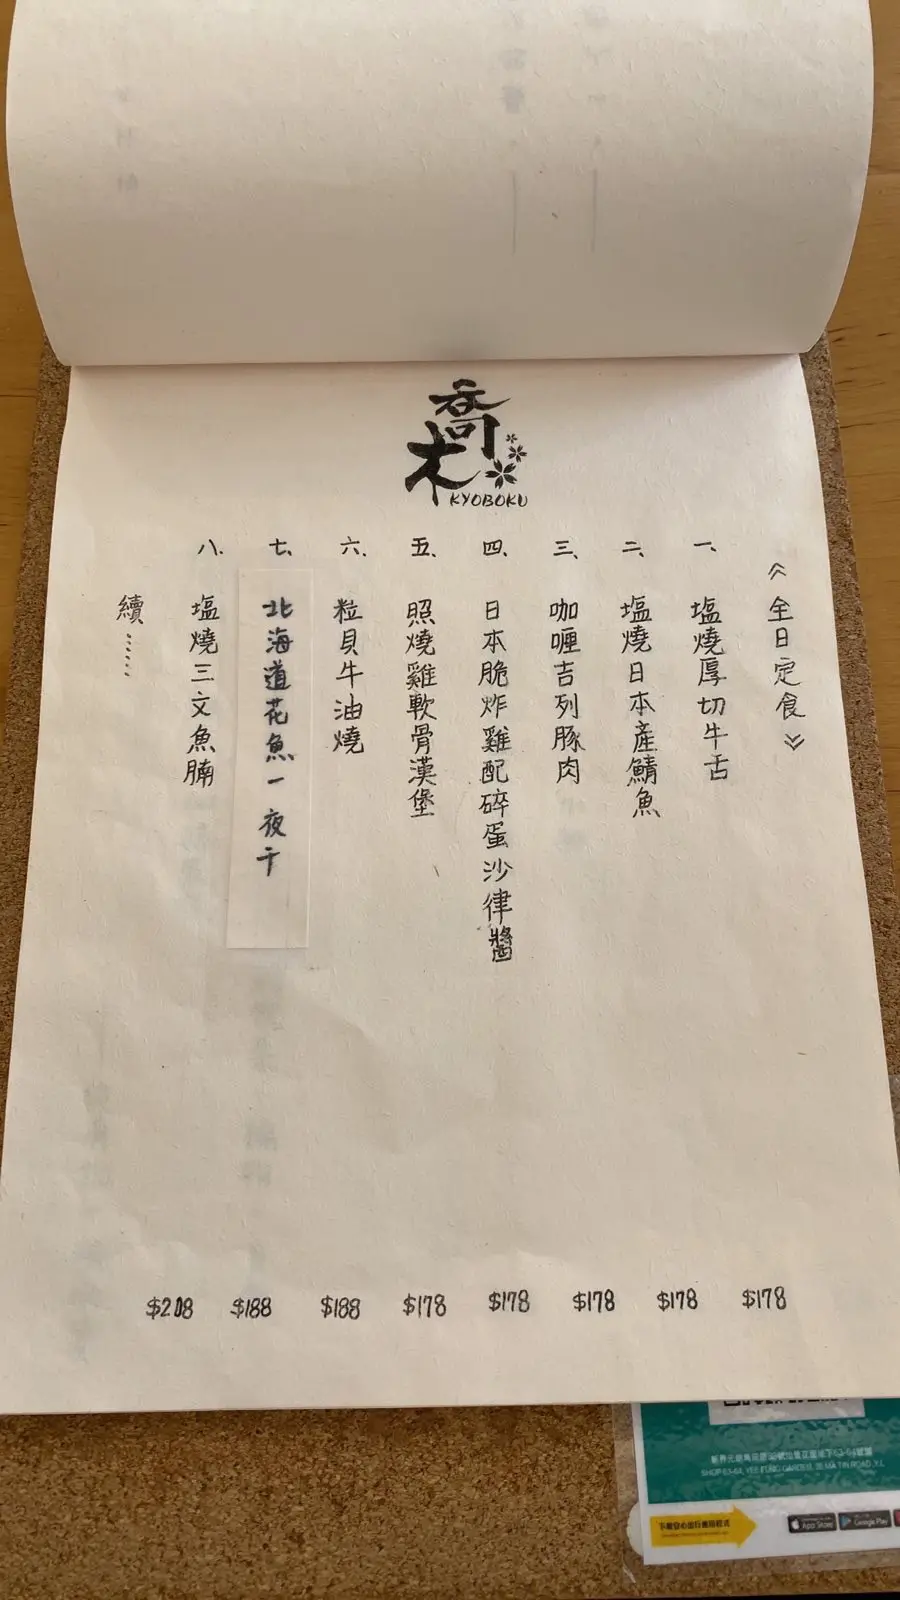 喬木
KYOBOKU
《全日定食》
一、塩燒厚切牛舌 $178
二、塩燒日本產鯖魚 $178
三、咖喱吉列豚肉 $178
四、日本脆炸雞配碎蛋沙律醬 $178
五、照燒雞軟骨漢堡 $178
六、粒貝牛油燒 $188
七、北海道花魚一夜干 $188
八、塩燒三文魚腩 $208
續……
SHOP 63-64, YEE FUNG GARDEN, 38 MA TIN ROAD, Y.L
下載安心出行應用程式
App Store
Google Play